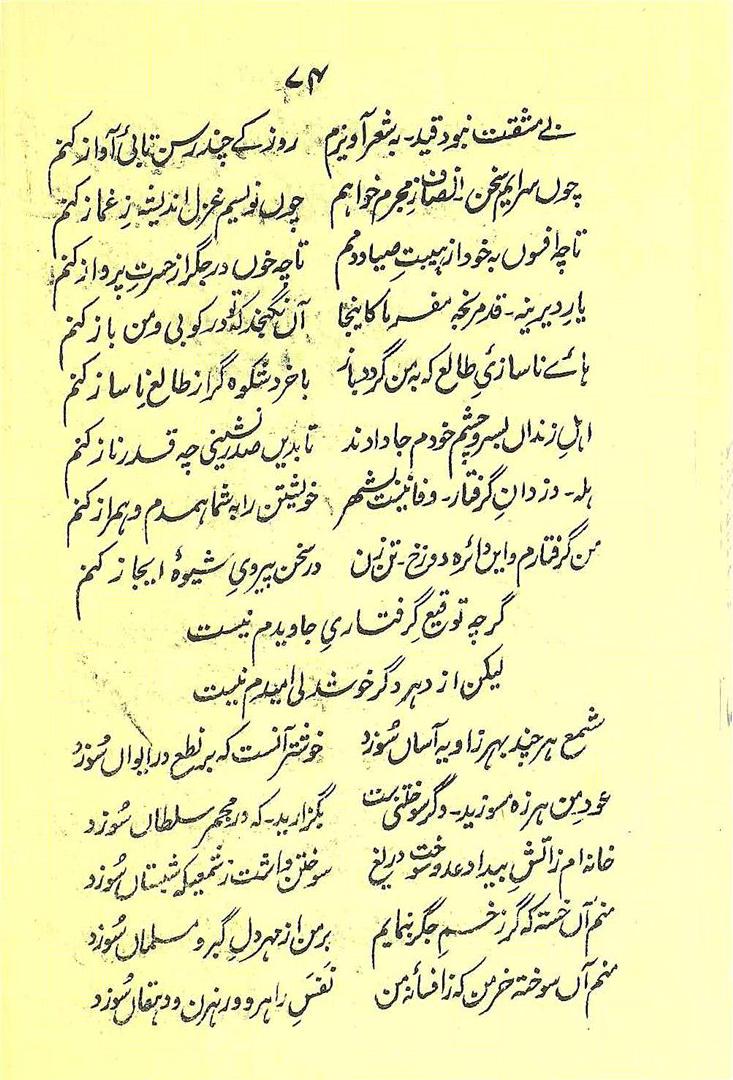 ۷۴
بے مشقت نبود قید۔ بہ شعر آویزم روز کے چند رسن تابیٔ آواز کنم
چوں سرایم سخن۔ انصاف ز مجرم خواہم چوں نویسم غزل اندیشہ زِ غماز کنم
تا چہ افسوں بہ خود از ہیبتِ صیاد دمم تا چہ خوں در جگر از حسرتِ پرواز کنم
یارِ دیرینہ۔ قدم رنجہ مفرما کاینجا آں نگنجد کہ تو در کوبی و من باز کنم
ہائے ناسازیٔ طالع کہ بہ من گردد باز با خرد شکوہ گر از طالعِ ناساز کنم
اہلِ زنداں بسر و چشمِ خودم جا دادند تا بدیں صدر نشینی چہ قدر ناز کنم
ہلہ۔ دزدانِ گرفتار۔ وفا نیست بشہر خویشتن را بہ شما ہمدم و ہمراز کنم
من گرفتارم و ایں دائرہ دوزخ۔ تن زن در سخن پیرویِ شیوۂ ایجاز کنم
گرچہ توقیعِ گرفتاریِ جاویدم نیست
لیکن از دہر دگر خوشدلی امیدم نیست
شمع ہر چند بہر زاویہ آساں سُوزد خوشتر آنست کہ بر نطع در ایواں سُوزد
عودِ من ہرزہ مسوزید۔ وگر سوختنی ست بگزارید۔ کہ در مجمرِ سلطاں سُوزد
خانہ ام ز آتشِ بیدادِ عدو سوخت دریغ سوختن داشت ز شمعیکہ شبستاں سُوزد
منم آں خستہ کہ گر زخمِ جگر بنمایم بر من از مہر دلِ گبر و مسلماں سُوزد
منم آں سوختہ خرمن کہ ز افسانۂ من نَفَسِ راہرو و رہزن و دہقاں سُوزد